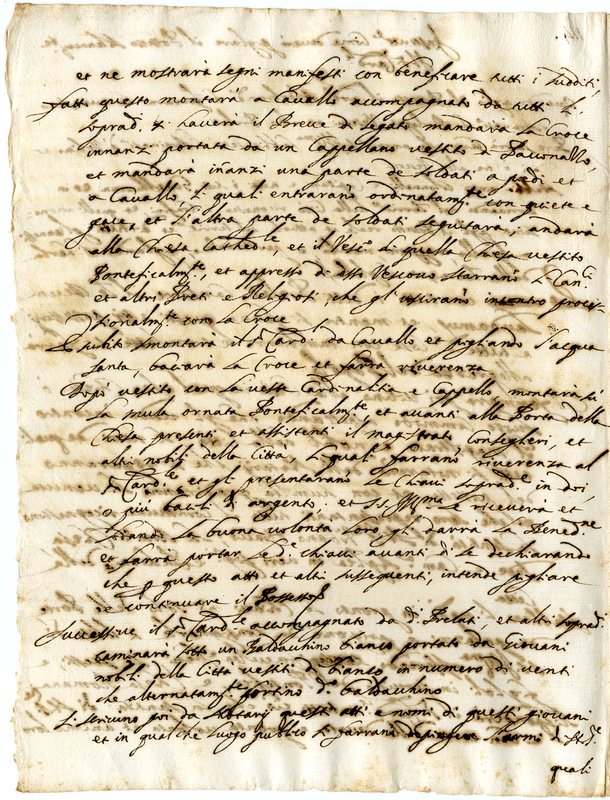 et ne mostrarà segni manifesti con beneficare tutti i sudditi,
fatto questo montarà a Cavallo accompagnato da tutti li
soprad.i & haverà il Breve di legato mandarà la Croce
innanzi portata da un Cappellano vestito di Pavonazzo,
et mandarà inanzi una parte de soldati a piedi et
a Cavallo, li quali entrarano ordinatam.te con quiete e
pace, et l'altra parte de soldati seguitarà, andarà
alla Chiesa Cathed.le, et il Vesc.o di quella Chiesa vestito
Pontificalm.te, et appresso di esso Vescovo starrano li Can.ci
et altri Preti e Religiosi, che gl'usciranò incontro proces-
sionalm.te con la Croce
E subito smontarà il s.r Card. da Cavallo et pigliando l'acqua
santa, baciarà la Croce et farrà riverenza
Dopò vestito con la veste Cardinalitia e Cappello, montarà sù
la mula ornata Pontificalm.te et avanti alla Porta della
Chiesa presenti, et assistenti il magistrato Conseglieri, et
altri nobili della Città, li quali farrano riverenza al
s.r Card.le et gli presentarano le Chiavi soprad.e in doi,
o più bacili di argento, et S.S. Ill.ma le riceverà et
lodando la buona volontà loro gli darrà la Bened.ne
et farrà portar le d.e chiavi avanti di se dechiarando
che p questo atto et altri susseguenti, intende pigliare
e continuare il Possesso
Successive il s.r Card.le accompagnato da d.i Prelati, et altri soprad.i
caminarà sotto un Baldacchino bianco portato da Giovani
nobili della Città vestiti di bianco in numero di venti
che alternatam.te portino d.o baldacchino
Si scrivino poi da Notarij questi atti e nomi di questi giovani
et in qualche luogo publico si farrano depingere l'armi di
quali